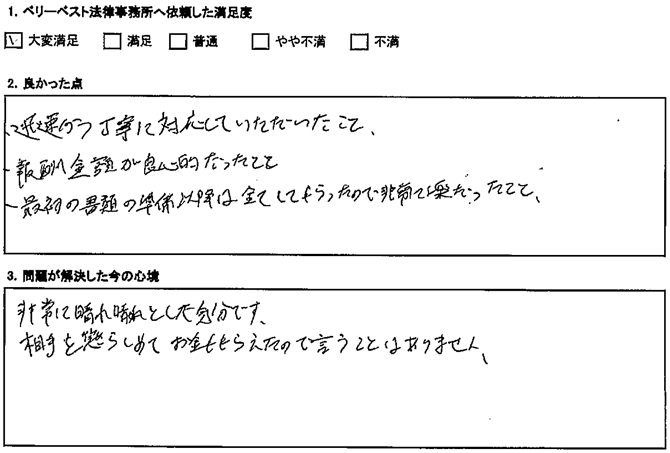 1. ベリーベスト法律事務所へ依頼した満足度
大変満足 満足 普通 やや不満 不満
2. 良かった点
・迅速かつ丁寧に対応していただいたこと、
・報酬金額が良心的だったこと
・最初の書類の準備以降は全てしてもらったので非常に楽だったこと、
3. 問題が解決した今の心境
非常に晴れ晴れとした気分です、
相手を懲らしめてお金ももらえたので言うことはありません、